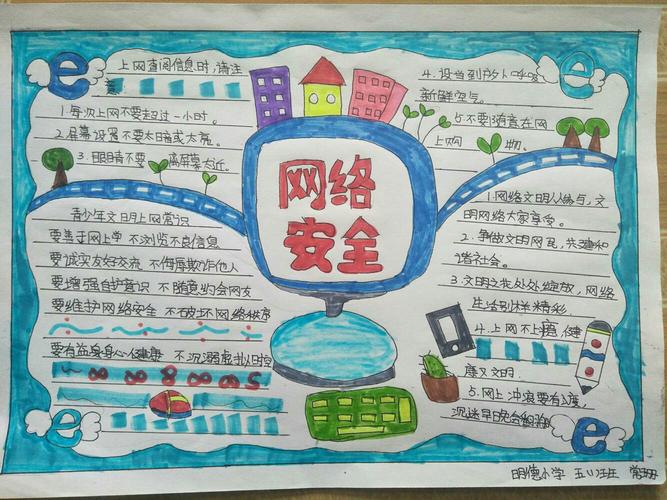 上网查阅信息时,请注
意
1.每次上网不要超过一小时。
2.屏幕设置不要太暗或太亮。
3.眼睛不要离屏幕太近。
青少年文明上网常识
要善于网上学 不浏览不良信息
要诚实友好交流 不侮辱欺诈他人
要增强自护意识 不随意约会网友
要维护网络安全 不破坏网络秩序
要有益身心健康 不沉溺虚拟时空
网络
安全
4.设当到户外呼吸
新鲜空气。
5.不要随意在网
上购物。
1.网络文明人人参与,文
明网络大家享受。
2.争做文明网民,共建和
谐社会。
3.文明之花处处绽放,网络
生活别样精彩
4.上网不上瘾,健
康又文明.
5.网上冲浪要有度,
沉迷早晚会翻船
明德小学 五(1)班